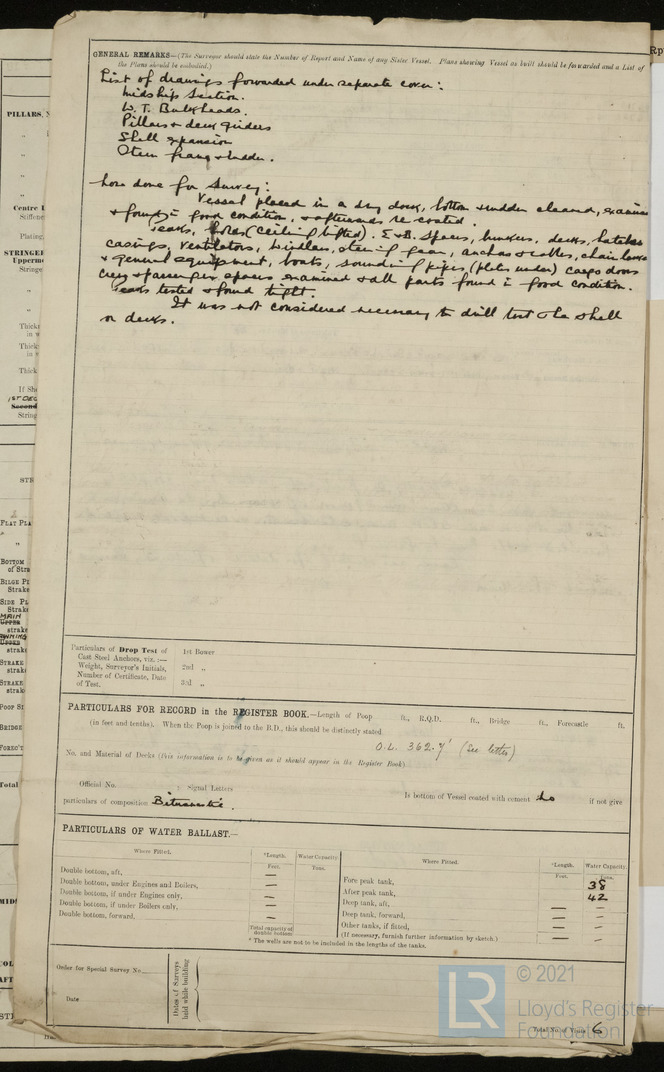 GENERAL REMARKS—(The Surveyor should state the Number of Report and Name of any Sister Vessel. Plans showing Vessel as built should be forwarded and a List of
the Plans should be embodied.)
List of drawings forwarded under separate cover:
Midship Section.
W. T. Bulkheads.
Pillars & deck girders
Shell expansion
Stern frame & rudder.
done for Survey:
Vessel placed in a dry dock, bottom & rudder cleaned, examined
& found in good condition, & afterwards re coated.
Peaks, holds (ceiling lifted). E & B. Spaces, bunkers, decks, hatches
casings, ventilators, windlass, steering gear, anchors & cables, chain lockers
& general equipment, boats, sounding pipes (plates under) cargo doors
crew & passenger spaces examined & all parts found in good condition.
Peaks tested & found tight.
It was not considered necessary to drill test the shell
or decks.
Particulars of Drop Test of
Cast Steel Anchors, viz. :—
Weight, Surveyor's Initials,
Number of Certificate, Date
of Test.
1st Bower
2nd „
3rd „
PARTICULARS FOR RECORD in the REGISTER BOOK.—Length of Poop ft., R.Q.D. ft., Bridge ft., Forecastle ft.
(in feet and tenths). When the Poop is joined to the B.D., this should be distinctly stated
O.L. 362.7' (See letter)
No. and Material of Decks (this information is to be given as it should appear in the Register Book)
Official No. Signal Letters Is bottom of Vessel coated with cement No if not give
particulars of composition Bitumastic.
PARTICULARS OF WATER BALLAST.—
Where Fitted. *Length. Water Capacity. Where Fitted. *Length. Water Capacity.
Feet. Tons. Feet. Tons.
Double bottom, aft, — Fore peak tank, 38
Double bottom, under Engines and Boilers, — After peak tank, 42
Double bottom, if under Engines only, — Deep tank, aft, — —
Double bottom, if under Boilers only, — Deep tank, forward, — —
Double bottom, forward. — Other tanks, if fitted, — —
Total capacity of double bottom
(If necessary, furnish further information by sketch.)
* The wells are not to be included in the lengths of the tanks.
Order for Special Survey No.
Date
Dates of Surveys
held while building
Total No. of Visits 6
LR
© 2021
Lloyd's Register
Foundation